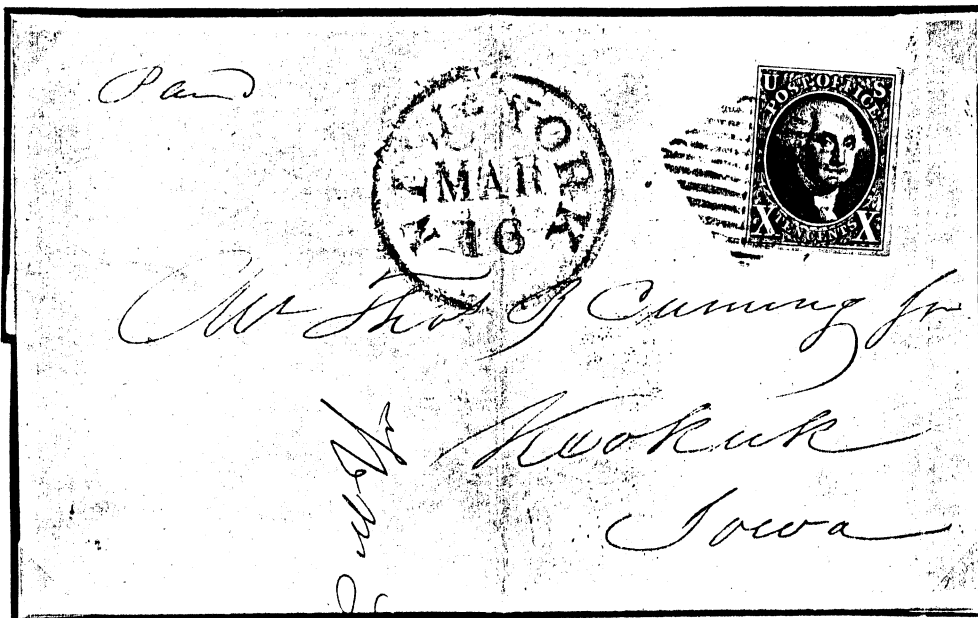 Paid
NEW YORK
MAR
16
U S
POST OFFICE
X TEN CENTS X
Mr Thos B Cuming Jr
Keokuk
Iowa